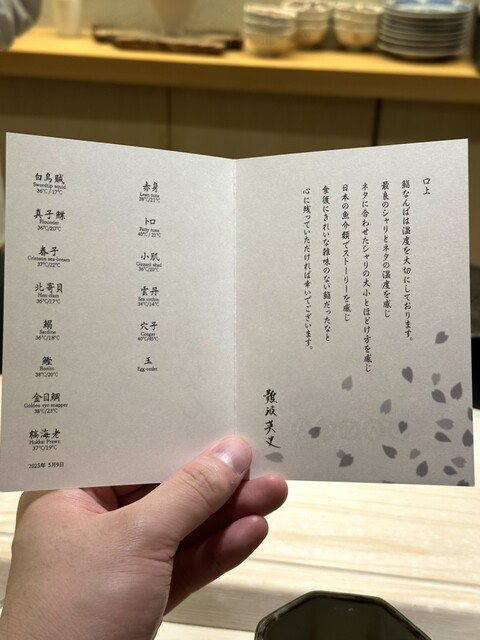 白烏賊
Swordtip squid
36℃/17℃
真子鰈
Flounder
36℃/20℃
春子
Crimson sea-bream
37℃/22℃
北寄貝
Hen-clam
36℃/17℃
鰯
Sardine
36℃/18℃
鰹
Bonito
38℃/20℃
金目鯛
Golden eye snapper
38℃/23℃
縞海老
Hokkai Prawn
37℃/19℃
2025年 5月9日
赤身
Lean tuna
38℃/21℃
トロ
Fatty tuna
40℃/22℃
小肌
Gizzard shad
36℃/20℃
雲丹
Sea urchin
34℃/14℃
穴子
Conger
40℃/40℃
玉
Egg omlet
口上
鮨なんばは温度を大切にしております。
最良のシャリとネタの温度を感じ
ネタに合わせたシャリの大小とほどけ方を感じ
日本の魚介類でストーリーを感じ
食後にきれいな雑味のない鮨だったなと
心に残っていただければ幸いでございます。
難波英史